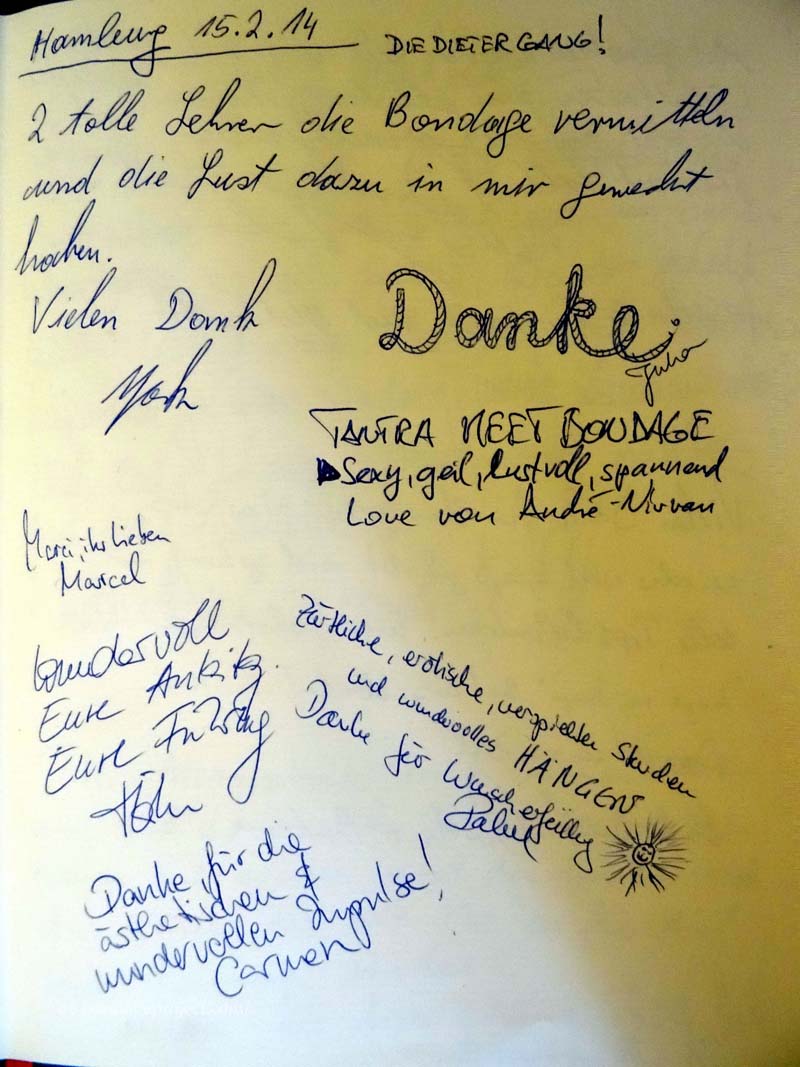 Hamburg 15.2.14
DIE DIETER GANG!
2 tolle Lehrer die Bondage vermitteln
und die Lust dazu in mir geweckt
haben.
Vielen Dank
York
Danke
Julia
TANTRA MEET BONDAGE
Sexy, geil, lustvoll, spannend
Love von André-Nirvan
Merci, ihr lieben
Marcel
Wundervoll
Eure
Eure Führung
Zärtliche, erotische, verspielten Stunden
und wundvolles HÄNGEN
Danke für Wunscherfüllung
Danke für die
ästhetischen &
wundervollen Impulse!
Carmen